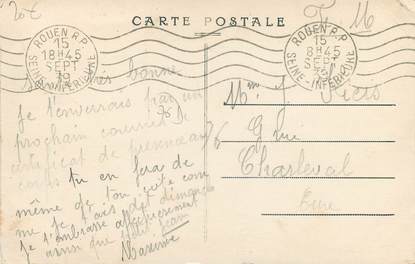 20€
CARTE POSTALE
T. M
ROUEN R.P.
15
18H45
SEPT
39
SEINE INFERIEURE
ROUEN R.P.
15
8H45
SEPT
SEINE INFERIEURE
bonne
Je t'enverrais par un
prochain courrier le
certificat de présence au
corps tu en fera de
même de ton côté com
me je fais des dimanche
Je t'embrasse affectueusement
ainsi que
Maxime
76
Mme
96 rue
Charleval
Eure